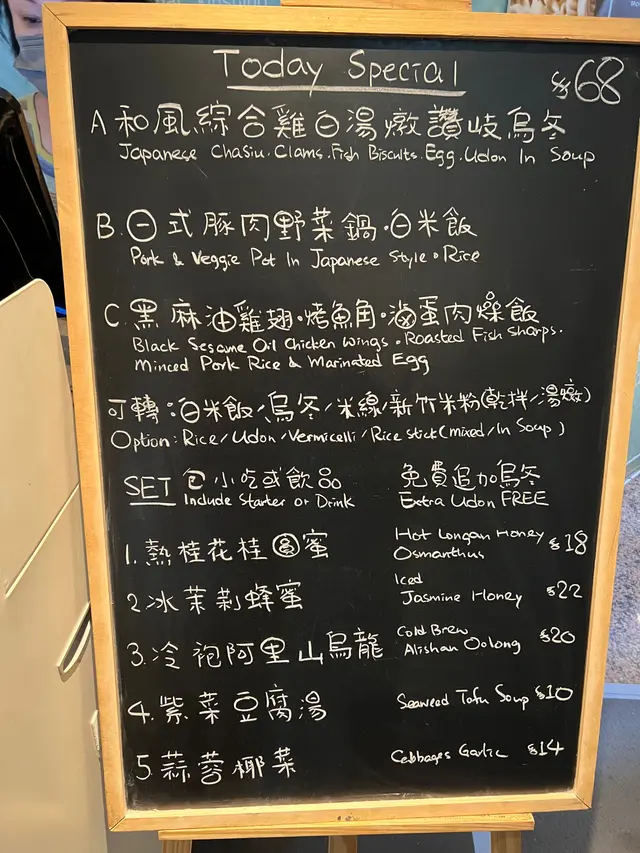 Today Special $68
A 和風綜合雞白湯燉讚岐烏冬
Japanese Chasiu. Clams. Fish Biscuits. Egg. Udon In Soup
B. 日式豚肉野菜鍋·白米飯
Pork & Veggie Pot In Japanese Style · Rice
C. 黑麻油雞翅·烤魚角·滷蛋肉燥飯
Black Sesame Oil Chicken Wings · Roasted Fish Sharps.
Minced Pork Rice & Marinated Egg
可轉:白米飯/烏冬/米線/新竹米粉(乾拌/湯燉)
Option: Rice/Udon/Vermicelli/Rice stick(mixed/In Soup)
SET 包小吃或飲品 免費追加烏冬
Include Starter or Drink Extra Udon FREE
1. 熱桂花桂圓蜜 Hot Longan Honey Osmanthus $18
2 冰茉莉蜂蜜 Iced Jasmine Honey $22
3. 冷袍阿里山烏龍 Cold Brew Alishan Oolong $20
4. 紫菜豆腐湯 Seaweed Tofu Soup $10
5. 蒜蓉椰菜 Cabbages Garlic $14